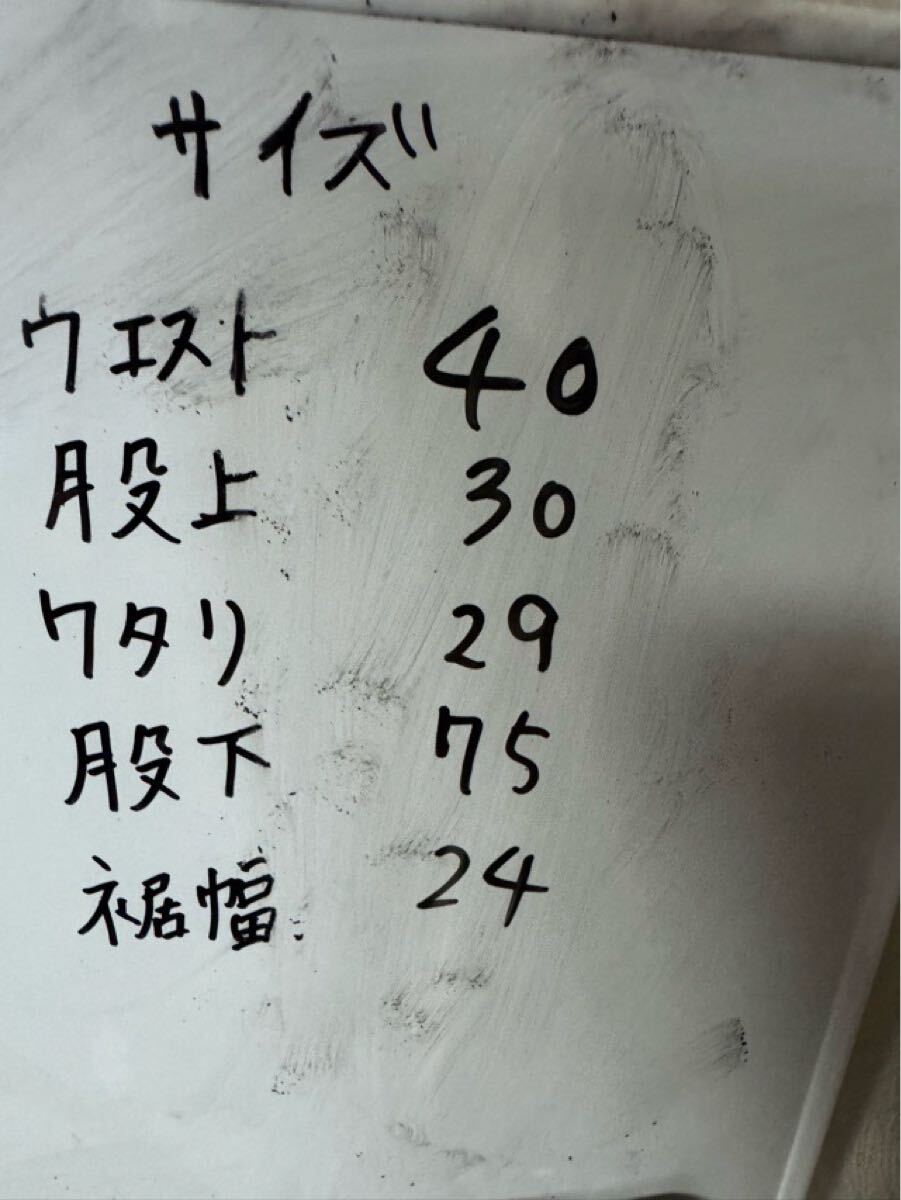 サイズ
ウエスト 40
股上 30
ワタリ 29
股下 75
裾幅 24